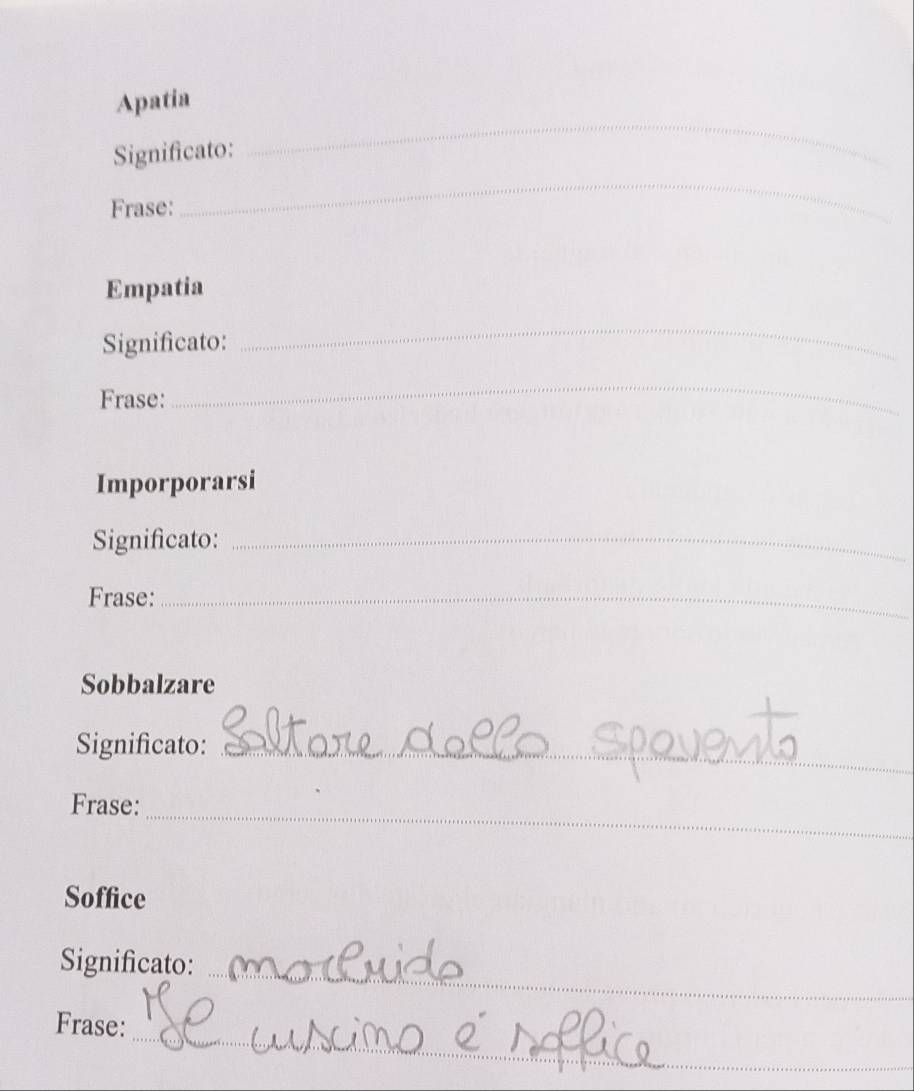 Apatia
Significato:
Frase:
Empatia
Significato:
Frase:
Imporporarsi
Significato:
Frase:
Sobbalzare
Significato: Saltare dallo spavento
Frase:
Soffice
Significato: morbuido
Frase: Il cuscino é soffice